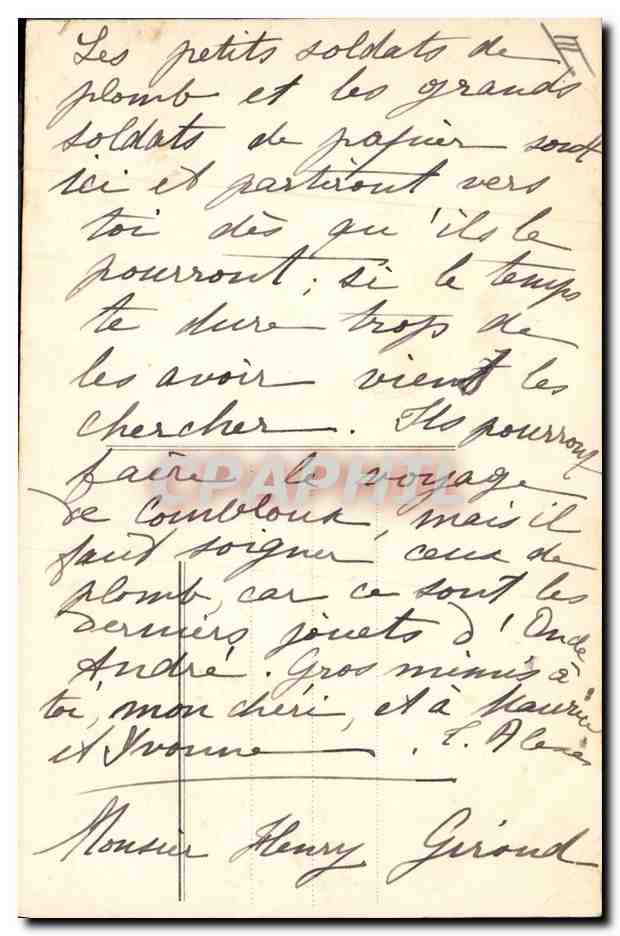 Les petits soldats de
plomb et les grands
soldats de papier sont
ici et partiront vers
toi dès qu'ils le
pourront ; si le temps
te dure trop de
les avoir viens les
chercher. Ils pourront
faire le voyage
de Combloux, mais il
faut soigner ceux de
plomb, car ce sont les
derniers jouets d'Oncle
André. Gros mimis à
toi, mon chéri, et à Maurice
et Yvonne.
Monsieur Henry Giroud
CPAPHIL